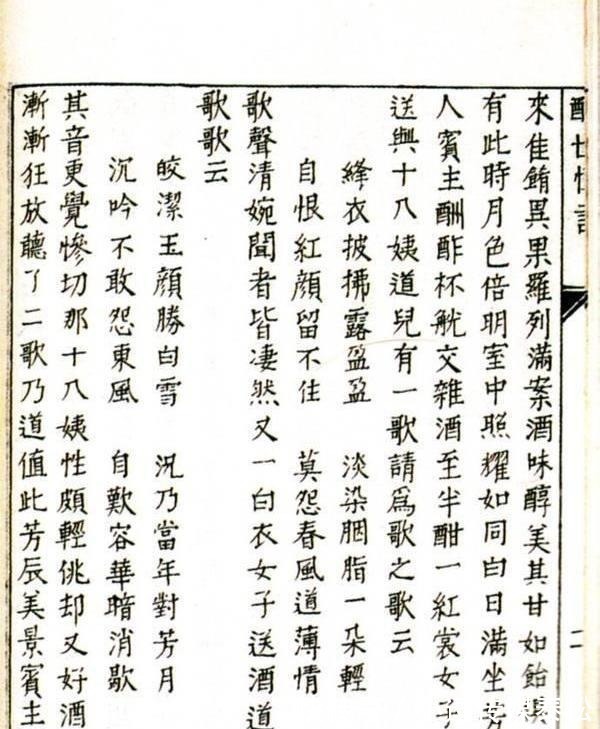 二
來佳餚異果羅列滿案酒味醇美其甘如飴
有此時月色倍明室中照耀如同白日滿坐芳
人賓主酬酢杯觥交雜酒至半酣一紅裳女子
送與十八姨道兒有一歌請爲歌之歌云
絳衣披拂露盈盈 淡染胭脂一朵輕
自恨紅顏留不住 莫怨春風道薄情
歌聲清婉聞者皆凄然又一白衣女子送酒道
歌歌云
皎潔玉顏勝白雪 況乃當年對芳月
沉吟不敢怨東風 自歎容華暗消歇
其音更覺慘切那十八姨性頗輕佻却又好酒
漸漸狂放聽了二歌乃道值此芳辰美景賓主